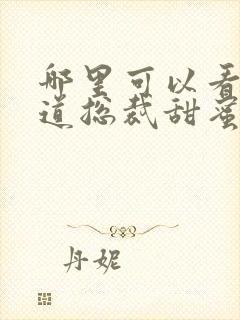 哪里可以看
道总裁甜蜜
丹妮